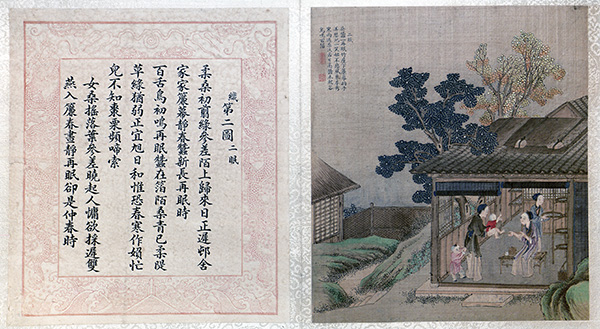 織第二圖 二眠
柔桑初剪綠參差陌上歸來日正遲邨舍
家家簾幕靜春蠶新長再眠時
百舌鳥初鳴再眠蠶在箔陌桑青已柔隄
草綠猶弱正宜旭日和惟恐春寒作嬾忙
兒不知棗栗頻啼索
女桑搖落葉參差曉起人慵欲採遲雙
燕入簾春晝靜再眠卻是仲春時
二眠